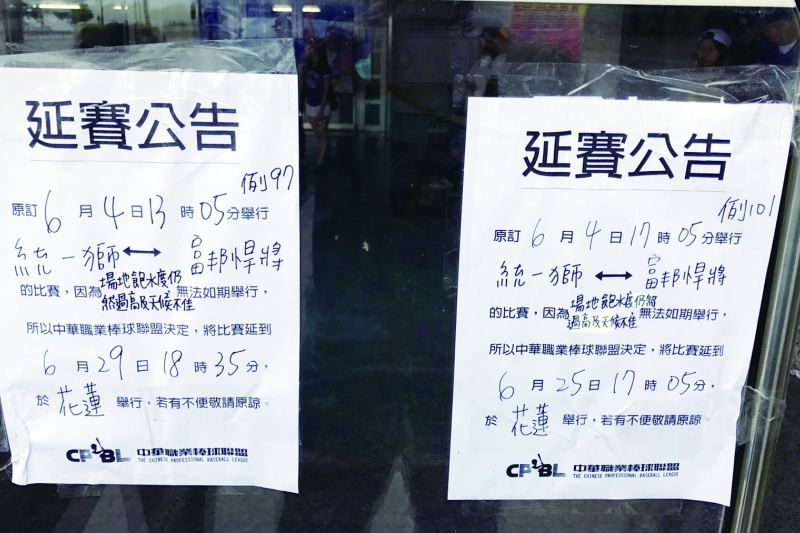 延賽公告
例97
原訂6月4日13時05分舉行
統一獅↔富邦悍將
場地飽水度仍
的比賽，因為 無法如期舉行，
然過高及天候不佳
所以中華職業棒球聯盟決定，將比賽延到
6月29日18時35分，
於花蓮舉行，若有不便敬請原諒。
CPBL 中華職業棒球聯盟
THE CHINESE PROFESSIONAL BASEBALL LEAGUE
延賽公告
例101
原訂6月4日17時05分舉行
統一獅↔富邦悍將
場地飽水度仍然
的比賽，因為 無法如期舉行，
過高及天候不佳
所以中華職業棒球聯盟決定，將比賽延到
6月25日17時05分，
於花蓮舉行，若有不便敬請原諒。
CPBL 中華職業棒球聯盟
THE CHINESE PROFESSIONAL BASEBALL LEAGUE